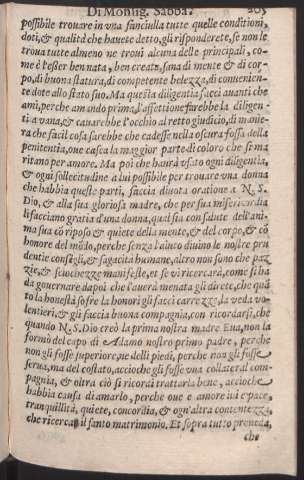 Di Monsig. Sabba.
possibile trouare in vna fanciulla tutte quelle conditioni,
doti, & qualità che hauete detto, gli risponderete, se non le
troua tutte almeno ne troui alcuna delle principali, co-
me è l'esser ben nata, ben creata, sana di mente & di cor-
po, di buona statura, di competente belezza, di conuenien-
te dote allo stato suo. Ma questa diligentia facci auanti che
ami, perche amando prima, l'affettione farebbe la diligen-
tia vana, & cauarebbe l'occhio al retto giudicio, di manie-
ra che facil cosa sarebbe che cadesse nella oscura fossa della
penitentia, oue casca la maggior parte di coloro che si ma
ritano per amore. Ma poi che haurà vsato ogni diligentia,
& ogni sollecitudine a lui possibile per trouare vna donna
che habbia queste parti, faccia diuota oratione a N. S.
Dio, & alla sua gloriosa madre, che per sua misericordia
li facciano gratia d'vna donna, qual sia con salute dell'ani-
ma sua cõ riposo & quiete della mente, & del corpo, & cõ
honore del mõdo, perche senza l'aiuto diuino le nostre pru
dentie consigli, & sagacità humane, altro non sono che paz
zie, & sciochezze manifeste, et se vi ricercarà, come si ha
da gouernare dapoi che l'auerà menata gli direte, che quã
to la honestà sofre la honori gli facci carezze, la veda vo-
lentieri, & gli faccia buona compagnia, con ricordarsi, che
quando N. S. Dio creò la prima nostra madre Eua, non la
formò del capo di Adamo nostro primo padre, perche
non gli fosse superiore, ne delli piedi, perche non gli fosse
serua, ma del costato, accioche gli fosse vna collateral com-
pagnia, & oltra ciò si ricordi trattarla bene, accioche
habbia causa di amarlo, perche oue e amore iui e pace,
tranquillità, quiete, concordia, & ogn'altra contentezza,
che ricerca il santo matrimonio. Et sopra tutto prenda,
che